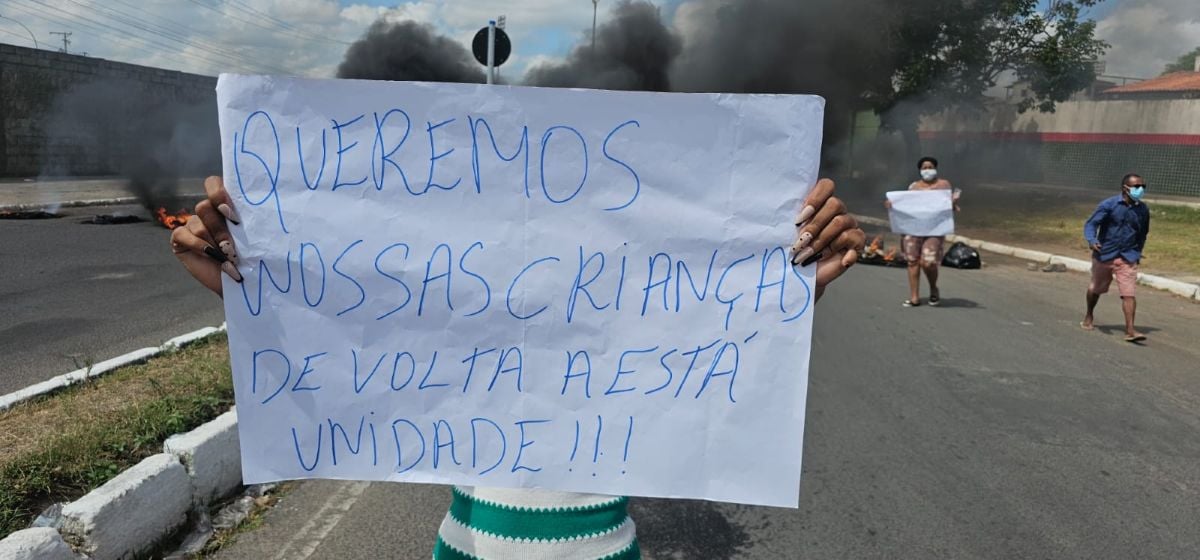 QUEREMOS
NOSSAS CRIANÇAS
DE VOLTA A ESTÁ
UNIDADE!!!